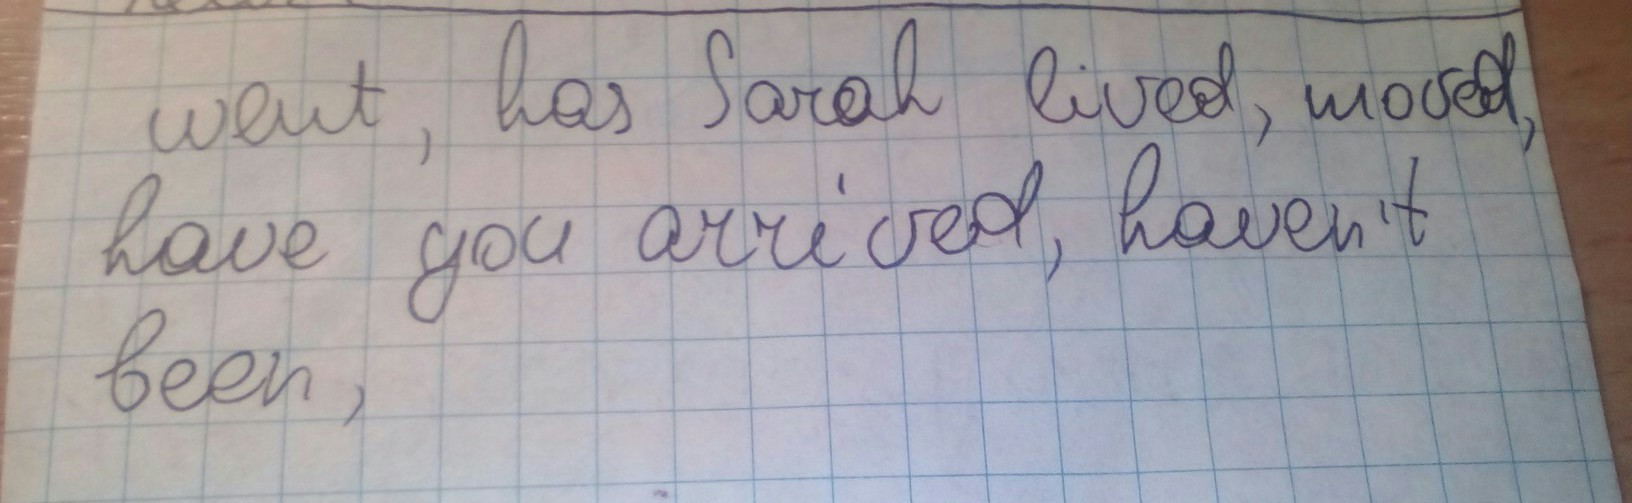 went, has Sarah lived, moved,
have you arrived, haven't
been,